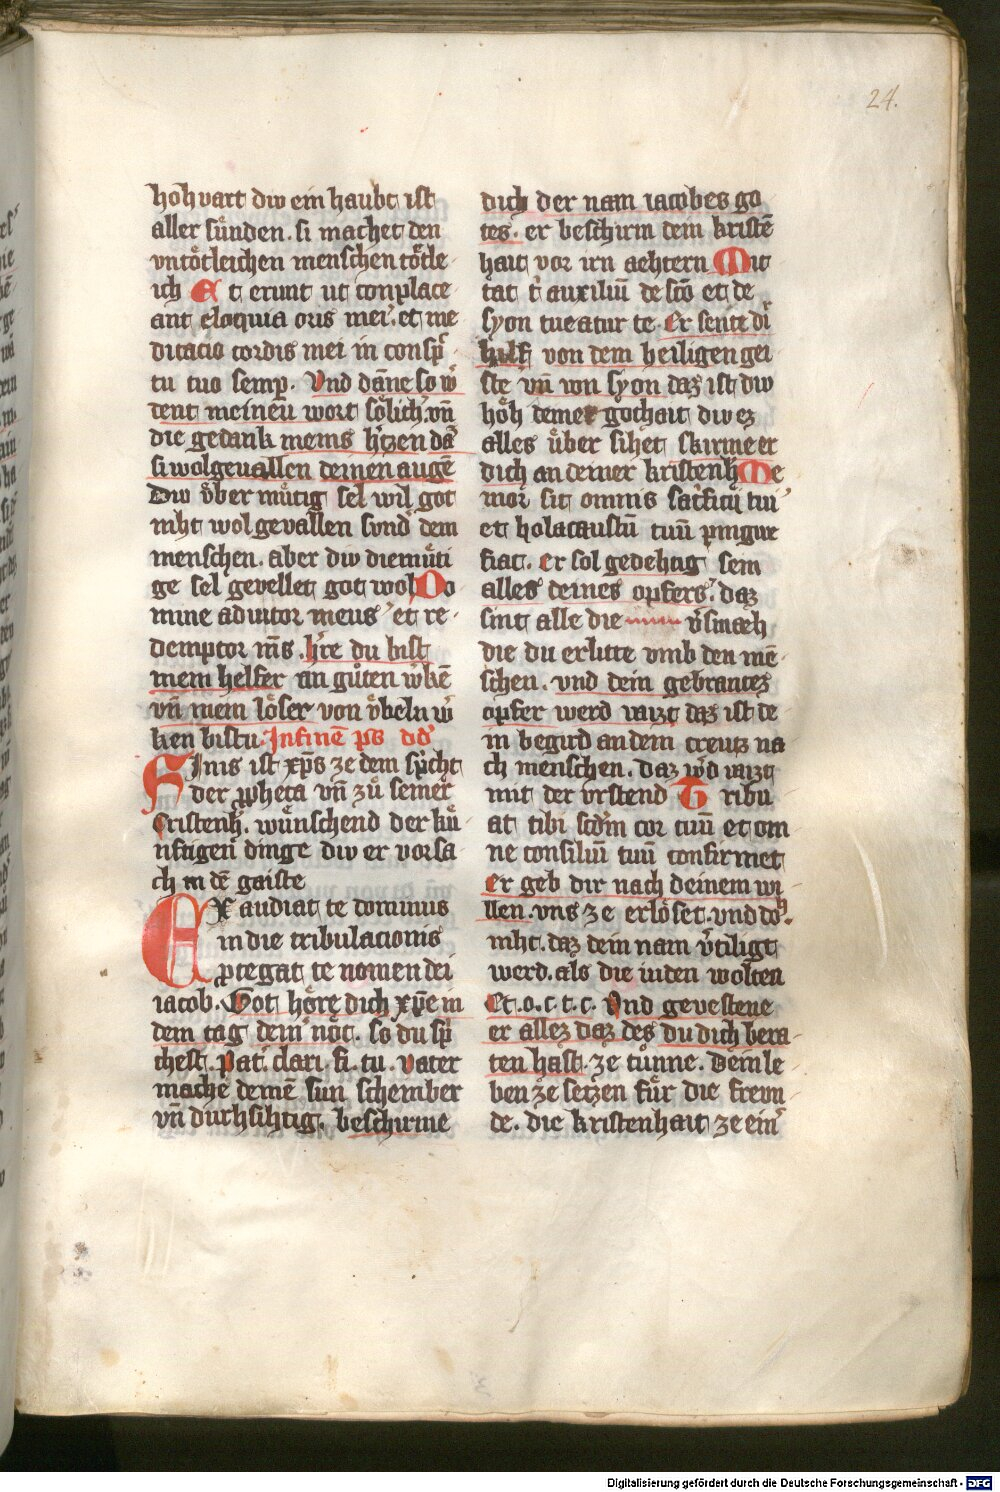 24.
hohvart diw ein haubt ist
aller súnden. si machet den
vntötleichen menschen tötle
ich Et erunt ut conplace
ant eloquia oris mei. et me
ditacio cordis mei in consp̄c
tu tuo semp. Vnd dāne so w̄
dent meineu wort sölich. vn̄
die gedank meins h̄tzen dā
si wolgevallen deinen augē
Diw v̊ber mu̇tig sel wil got
niht wol gevallen svnd̄ dem
menschen. aber diw diemu̇ti
ge sel gevellet got wol Do
mine adiutor meus et re
demptor m̄s. h̄re du bist
mein helfer an gůten w̄kē
vn̄ mein löser von v̊beln w̄
ken bistu. In finē ps dd̄
Finis ist xp̄s ze dem sp̄cht
der p̄pheta vn̄ zů seiner
cristenh̄. wu̇nschend der ku̇
nftigen dinge diw er vorsa
ch in dē gaiste
Exaudiat te dominus
in die tribulacionis
ptegat te nomen dei
iacob. Got hȯre dich xp̄e in
dem tag dein nȯt. so du sp̄i
chest. Pat. clari. fi. tu. vater
mache deinē sun schember
vn̄ durhsihtig. beschirme
dich der nam iacobes go
tes. er beschirm dem kristē
hait vor irn aehtern Mit
tat t̄ auxiliū de sc̄o et de
syon tueatur te. Er sente dī
hilf von dem heiligen gei
ste vn̄ von syon daz ist diw
höh deiner gothait diw ez
alles v̊ber sihet skirme er
dich an deiner kristenh̄ Me
mor sit omnis sac̄ficij tui
et holacaustū tuū pingwe
fiat. er sol gedehtig sein
alles deines opfers. daz
sint alle die v̄smæh
die du erlitte vmb den mē
schen. vnd dein gebrantes
opfer werd vaizt daz ist de
in begird an dem creutz na
ch menschen. daz w̄d vaizt
mit der vrstend Tribu
at tibi sc̄dm cor tuū et om
ne consiliū tuū confirmet
er geb dir nach deinem wi
llen. vns ze erlöset. vnd doh.
niht. daz dein nam v̄tiligt
werd. als die iuden wolten
Et. o. c. t. c. Vnd gevestene
er allez daz des du dich bera
ten hast. ze tu̇nne. Dein le
ben ze setzen fu̇r die frevn
de. die kristenhait ze ein̄
Digitalisierung gefördert durch die Deutsche Forschungsgemeinschaft - DFG